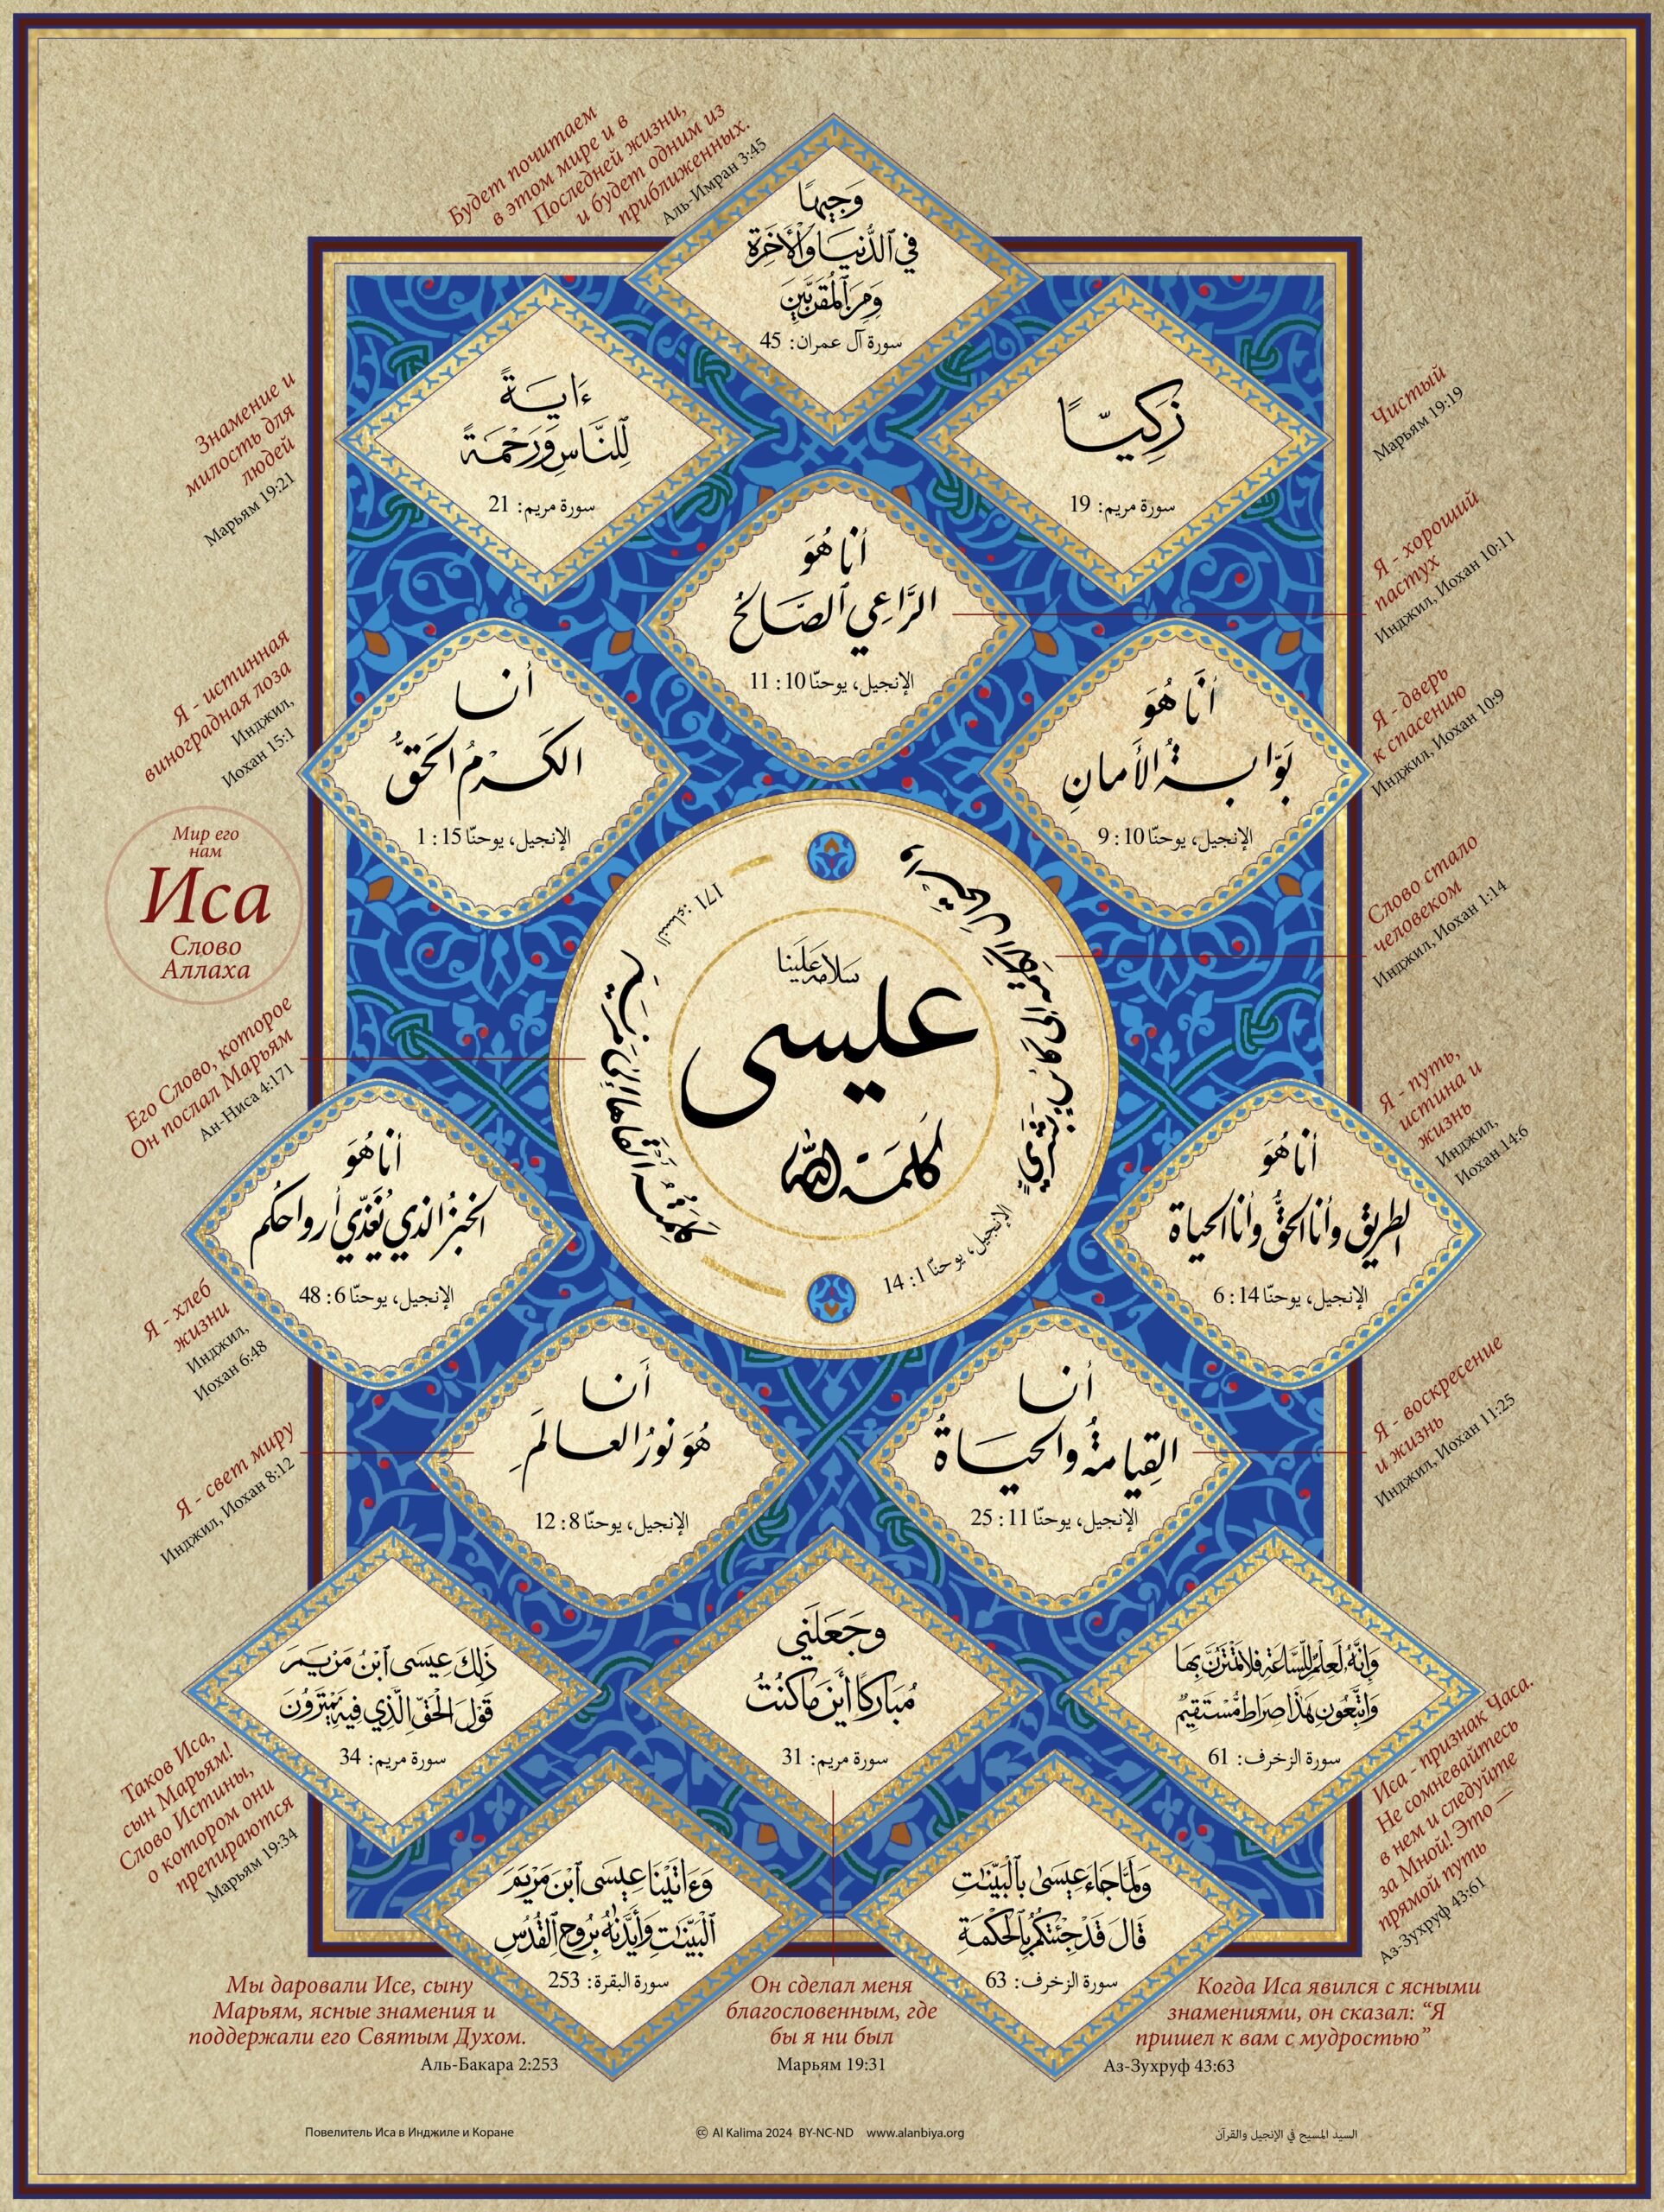 Будет почитаем
в этом мире и в
Последней жизни,
и будет одним из
приближенных.
Аль-Имран 3:45
وَجِيهًا
فِي ٱلدُّنْيَا وَٱلْأَخِرَةِ
وَمِنَ ٱلْمُقَرَّبِينَ
سورة آل عمران: 45
Знамение и
милость для
людей
Марьям 19:21
ءَايَةً
لِّلنَّاسِ وَرَحْمَةً
سورة مريم: 21
زَكِيًّا
سورة مريم: 19
Чистый
Марьям 19:19
أنا هُوَ
الرَّاعِي ٱلصَّالِحُ
الإنجيل، يوحنّا 10: 11
Я - хороший
пастух
Инджил, Иохан 10:11
Я - истинная
виноградная лоза
Инджил,
Иохан 15:1
أنا
الكَرْمُ الحَقُّ
الإنجيل، يوحنّا 15: 1
أَنَا هُوَ
بَوّابةُ الأَمانِ
الإنجيل، يوحنّا 10: 9
Я - дверь
к спасению
Инджил, Иохан 10:9
Мир его
нам
Иса
Слово
Аллаха
سلامه علينا
عليسى
كلمة الله
النساء: 171
الإنجيل، يوحنّا 1: 14
Слово стало
человеком
Инджил, Иохан 1:14
Его Слово, которое
Он послал Марьям
Ан-Ниса 4:171
أنا هُوَ
الخبزُ الذي تُغَذّي أرواحكُم
الإنجيل، يوحنّا 6: 48
Я - хлеб
жизни
Инджил,
Иохан 6:48
أنا هُوَ
الطريقُ وأنا الحقُّ وأنا الحياة
الإنجيل، يوحنّا 14: 6
Я - путь,
истина и
жизнь
Инджил,
Иохан 14:6
أَنا
هُوَ نورُ العالَمِ
الإنجيل، يوحنّا 8: 12
Я - свет миру
Инджил, Иохан 8:12
أنا
القِيامةُ والحياةُ
الإنجيل، يوحنّا 11: 25
Я - воскресение
и жизнь
Инджил, Иохан 11:25
ذَٰلِكَ عِيسَى ٱبْنُ مَرْيَمَ
قَوْلَ الْحَقِّ الَّذِي فِيهِ يَمْتَرُونَ
سورة مريم: 34
Таков Иса,
сын Марьям!
Слово Истины,
о котором они
препираются
Марьям 19:34
وَجَعَلَنِي
مُبَارَكًا أَيْنَ مَا كُنتُ
سورة مريم: 31
وَإِنَّهُ لَعِلْمٌ لِّلسَّاعَةِ فَلَا تَمْتَرُنَّ بِهَا
وَاتَّبِعُونِ هَٰذَا صِرَاطٌ مُّسْتَقِيمٌ
سورة الزخرف: 61
Иса - признак Часа.
Не сомневайтесь
в нем и следуйте
за Мной! Это —
прямой путь
Аз-Зухруф 43:61
وَءَاتَيْنَا عِيسَى ٱبْنَ مَرْيَمَ
ٱلْبَيِّنَٰتِ وَأَيَّدْنَٰهُ بِرُوحِ ٱلْقُدُسِ
سورة البقرة: 253
وَلَمَّا جَاءَ عِيسَىٰ بِٱلْبَيِّنَٰتِ
قَالَ قَدْ جِئْتُكُم بِٱلْحِكْمَةِ
سورة الزخرف: 63
Мы даровали Исе, сыну
Марьям, ясные знамения и
поддержали его Святым Духом.
Аль-Бакара 2:253
Он сделал меня
благословенным, где
бы я ни был
Марьям 19:31
Когда Иса явился с ясными
знамениями, он сказал: “Я
пришел к вам с мудростью”
Аз-Зухруф 43:63
Повелитель Иса в Инджиле и Коране
© Al Kalima 2024 BY-NC-ND www.alanbiya.org
السيد المسيح في الإنجيل والقرآن